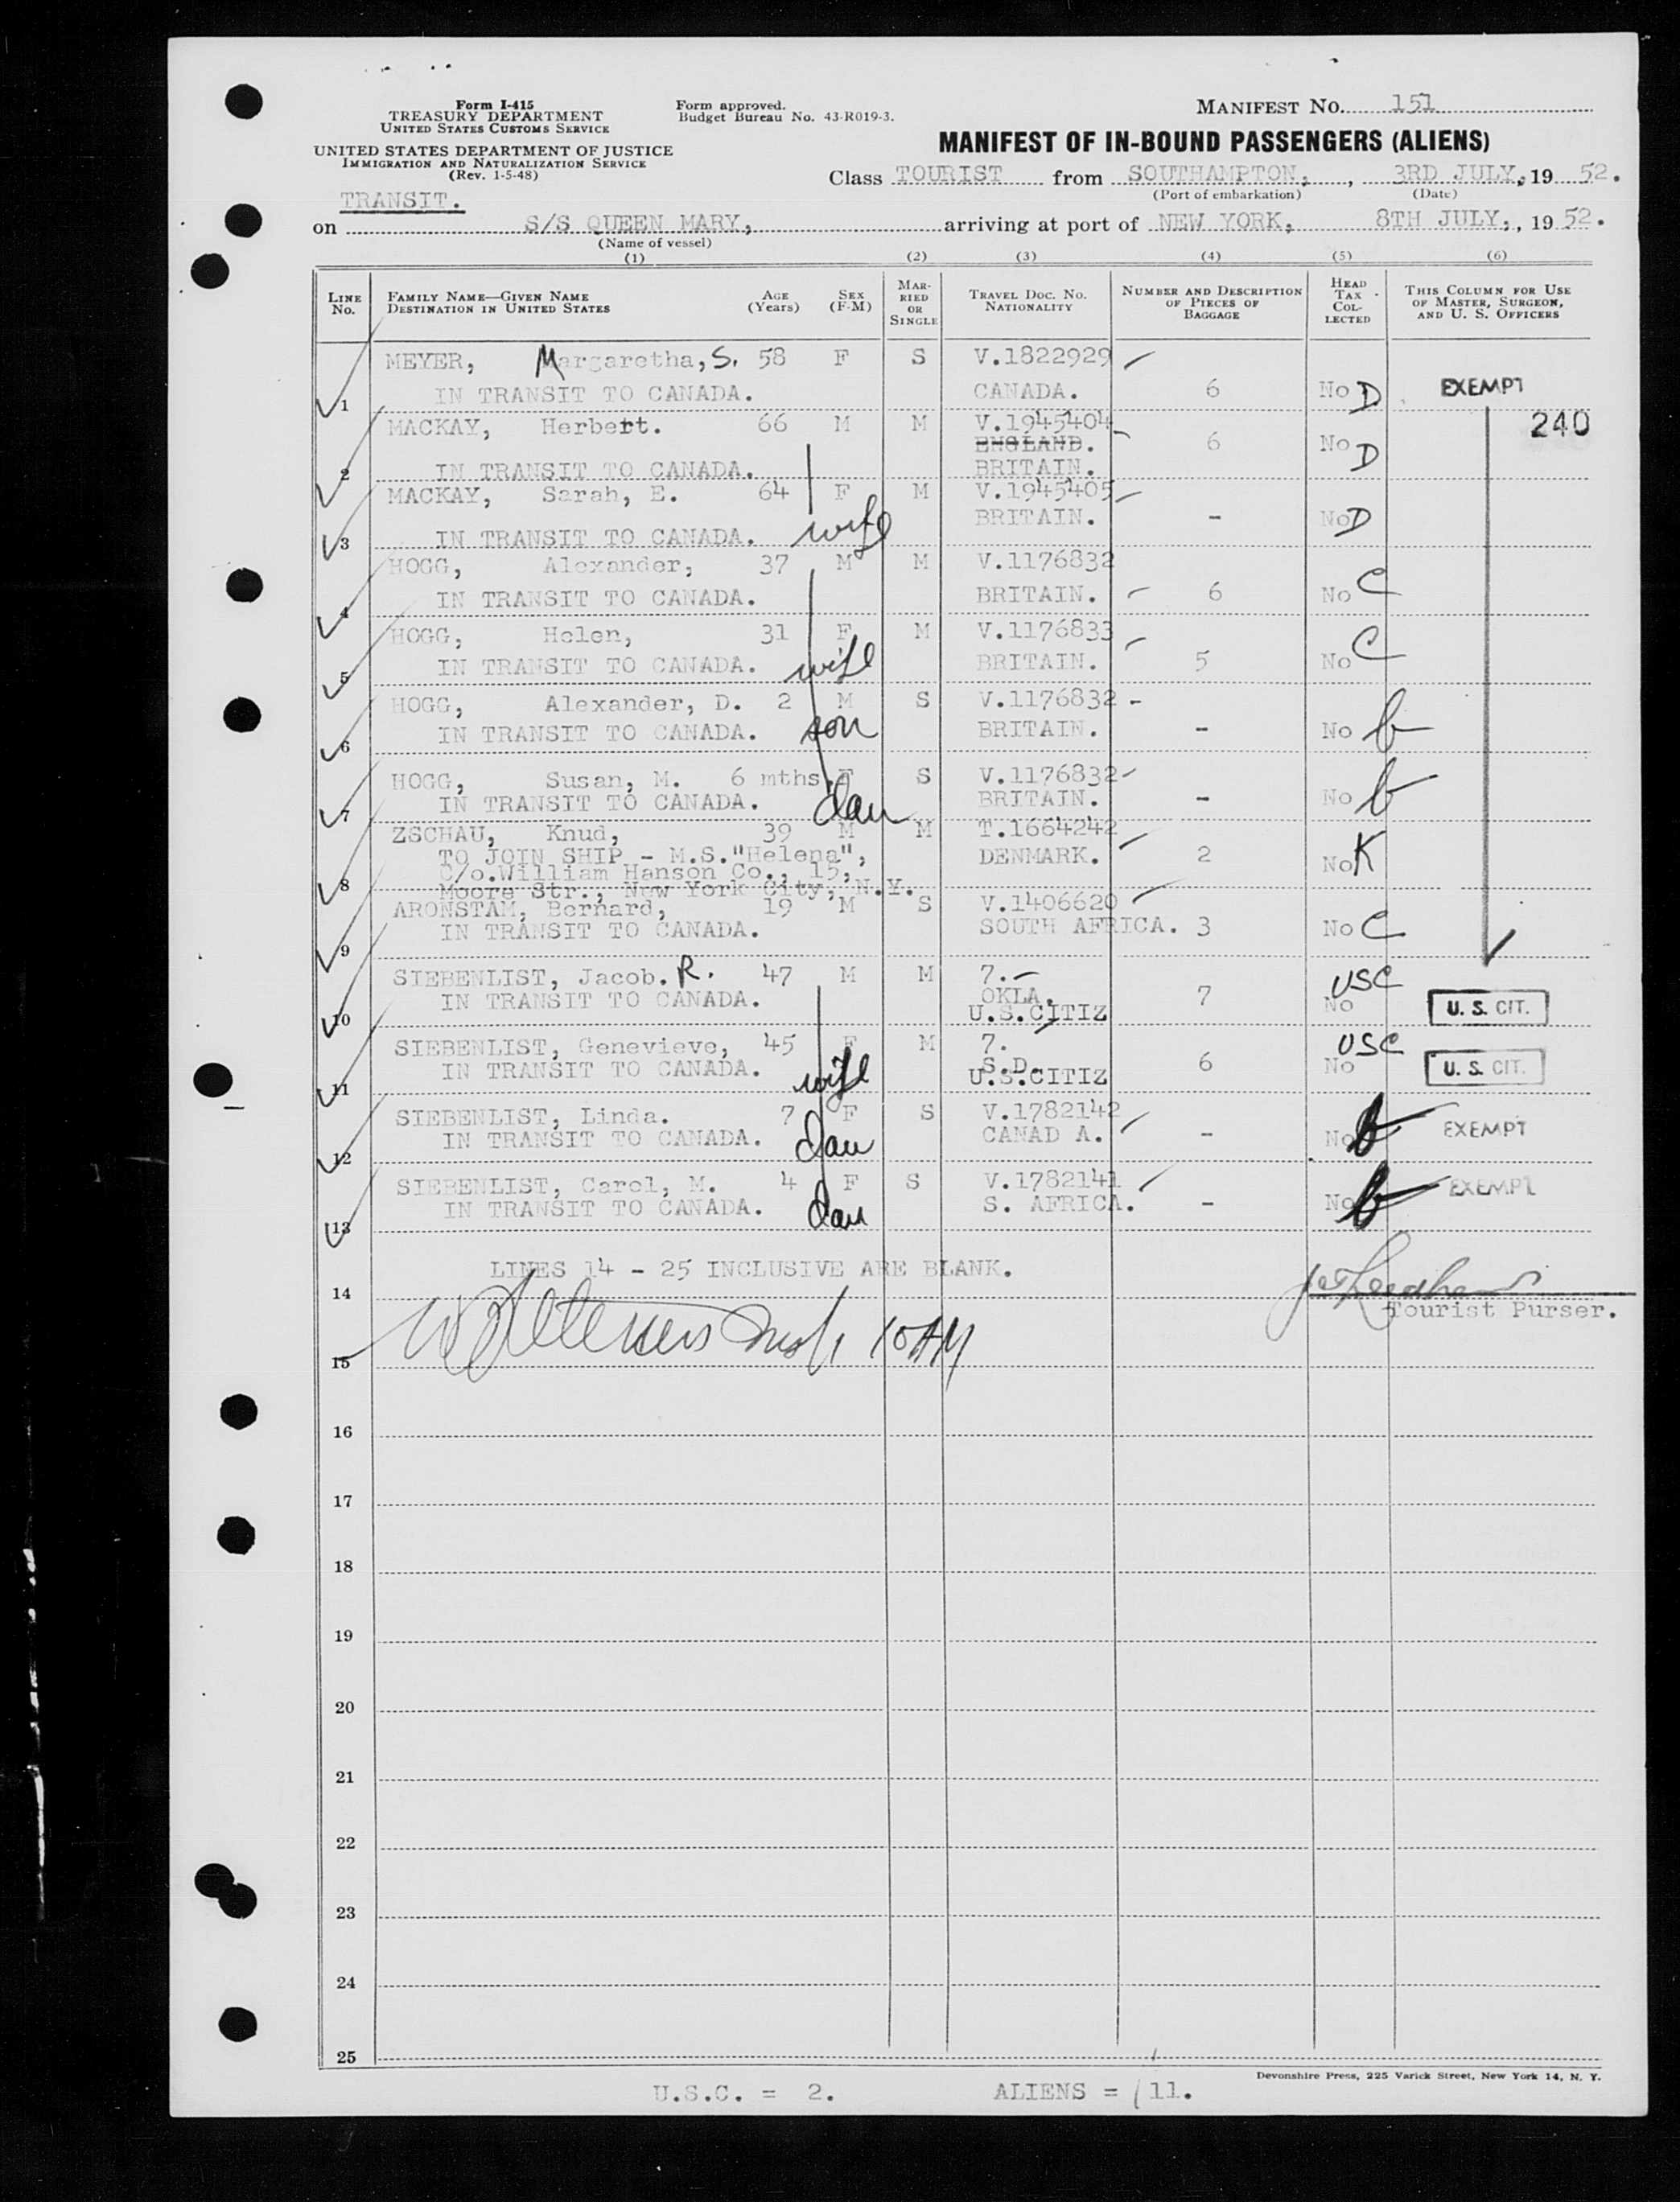 Form I-415
TREASURY DEPARTMENT
UNITED STATES CUSTOMS SERVICE
UNITED STATES DEPARTMENT OF JUSTICE
IMMIGRATION AND NATURALIZATION SERVICE
(Rev. 1-5-48)
Form approved.
Budget Bureau No. 43-R019-3.
MANIFEST NO. 151
MANIFEST OF IN-BOUND PASSENGERS (ALIENS)
Class TOURIST from SOUTHAMPTON, , 3RD JULY, 19 52.
(Port of embarkation) (Date)
TRANSIT.
on S/S QUEEN MARY, arriving at port of NEW YORK, 8TH JULY, , 19 52.
(Name of vessel)
(1) (2) (3) (4) (5) (6)
LINE NO. FAMILY NAME—GIVEN NAME DESTINATION IN UNITED STATES AGE (YEARS) SEX (F-M) MARRIED OR SINGLE TRAVEL DOC. NO. NATIONALITY NUMBER AND DESCRIPTION OF PIECES OF BAGGAGE HEAD TAX COLLECTED THIS COLUMN FOR USE OF MASTER, SURGEON, AND U. S. OFFICERS
MEYER, Margaretha, S. 58 F S V.1822929
1 IN TRANSIT TO CANADA. CANADA. 6 No D EXEMPT
240
MACKAY, Herbert. 66 M M V.1945404
ENGLAND. 6 No D
2 IN TRANSIT TO CANADA. BRITAIN.
MACKAY, Sarah, E. 64 F M V.1945405
BRITAIN. - No D
3 IN TRANSIT TO CANADA. wife
HOGG, Alexander, 37 M M V.1176832
4 IN TRANSIT TO CANADA. BRITAIN. 6 No C
HOGG, Helen, 31 F M V.1176833
5 IN TRANSIT TO CANADA. wife BRITAIN. 5 No C
HOGG, Alexander, D. 2 M S V.1176832
6 IN TRANSIT TO CANADA. son BRITAIN. - No b
HOGG, Susan, M. 6 mths. F S V.1176832
7 IN TRANSIT TO CANADA. dau BRITAIN. - No b
ZSCHAU, Knud, 39 M M T.1664242
TO JOIN SHIP - M.S."Helena", DENMARK. 2 No K
C/o.William Hanson Co., 15,
8 Moore Str., New York City, N.Y.
ARONSTAM, Bernard, 19 M S V.1406620
9 IN TRANSIT TO CANADA. SOUTH AFRICA. 3 No C
SIEBENLIST, Jacob. R. 47 M M 7.- USC
10 IN TRANSIT TO CANADA. OKLA, 7 No U. S. CIT.
U.S.CITIZ
SIEBENLIST, Genevieve, 45 F M 7. USC
11 IN TRANSIT TO CANADA. wife S.D. 6 No U. S. CIT.
U.S.CITIZ
SIEBENLIST, Linda. 7 F S V.1782142
12 IN TRANSIT TO CANADA. dau CANAD A. - No b EXEMPT
SIEBENLIST, Carol, M. 4 F S V.1782141
13 IN TRANSIT TO CANADA. dau S. AFRICA. - No b EXEMPT
LINES 14 - 25 INCLUSIVE ARE BLANK.
14
Tourist Purser.
15 10 AM
16
17
18
19
20
21
22
23
24
25
Devonshire Press, 225 Varick Street, New York 14, N. Y.
U.S.C. = 2. ALIENS = 11.